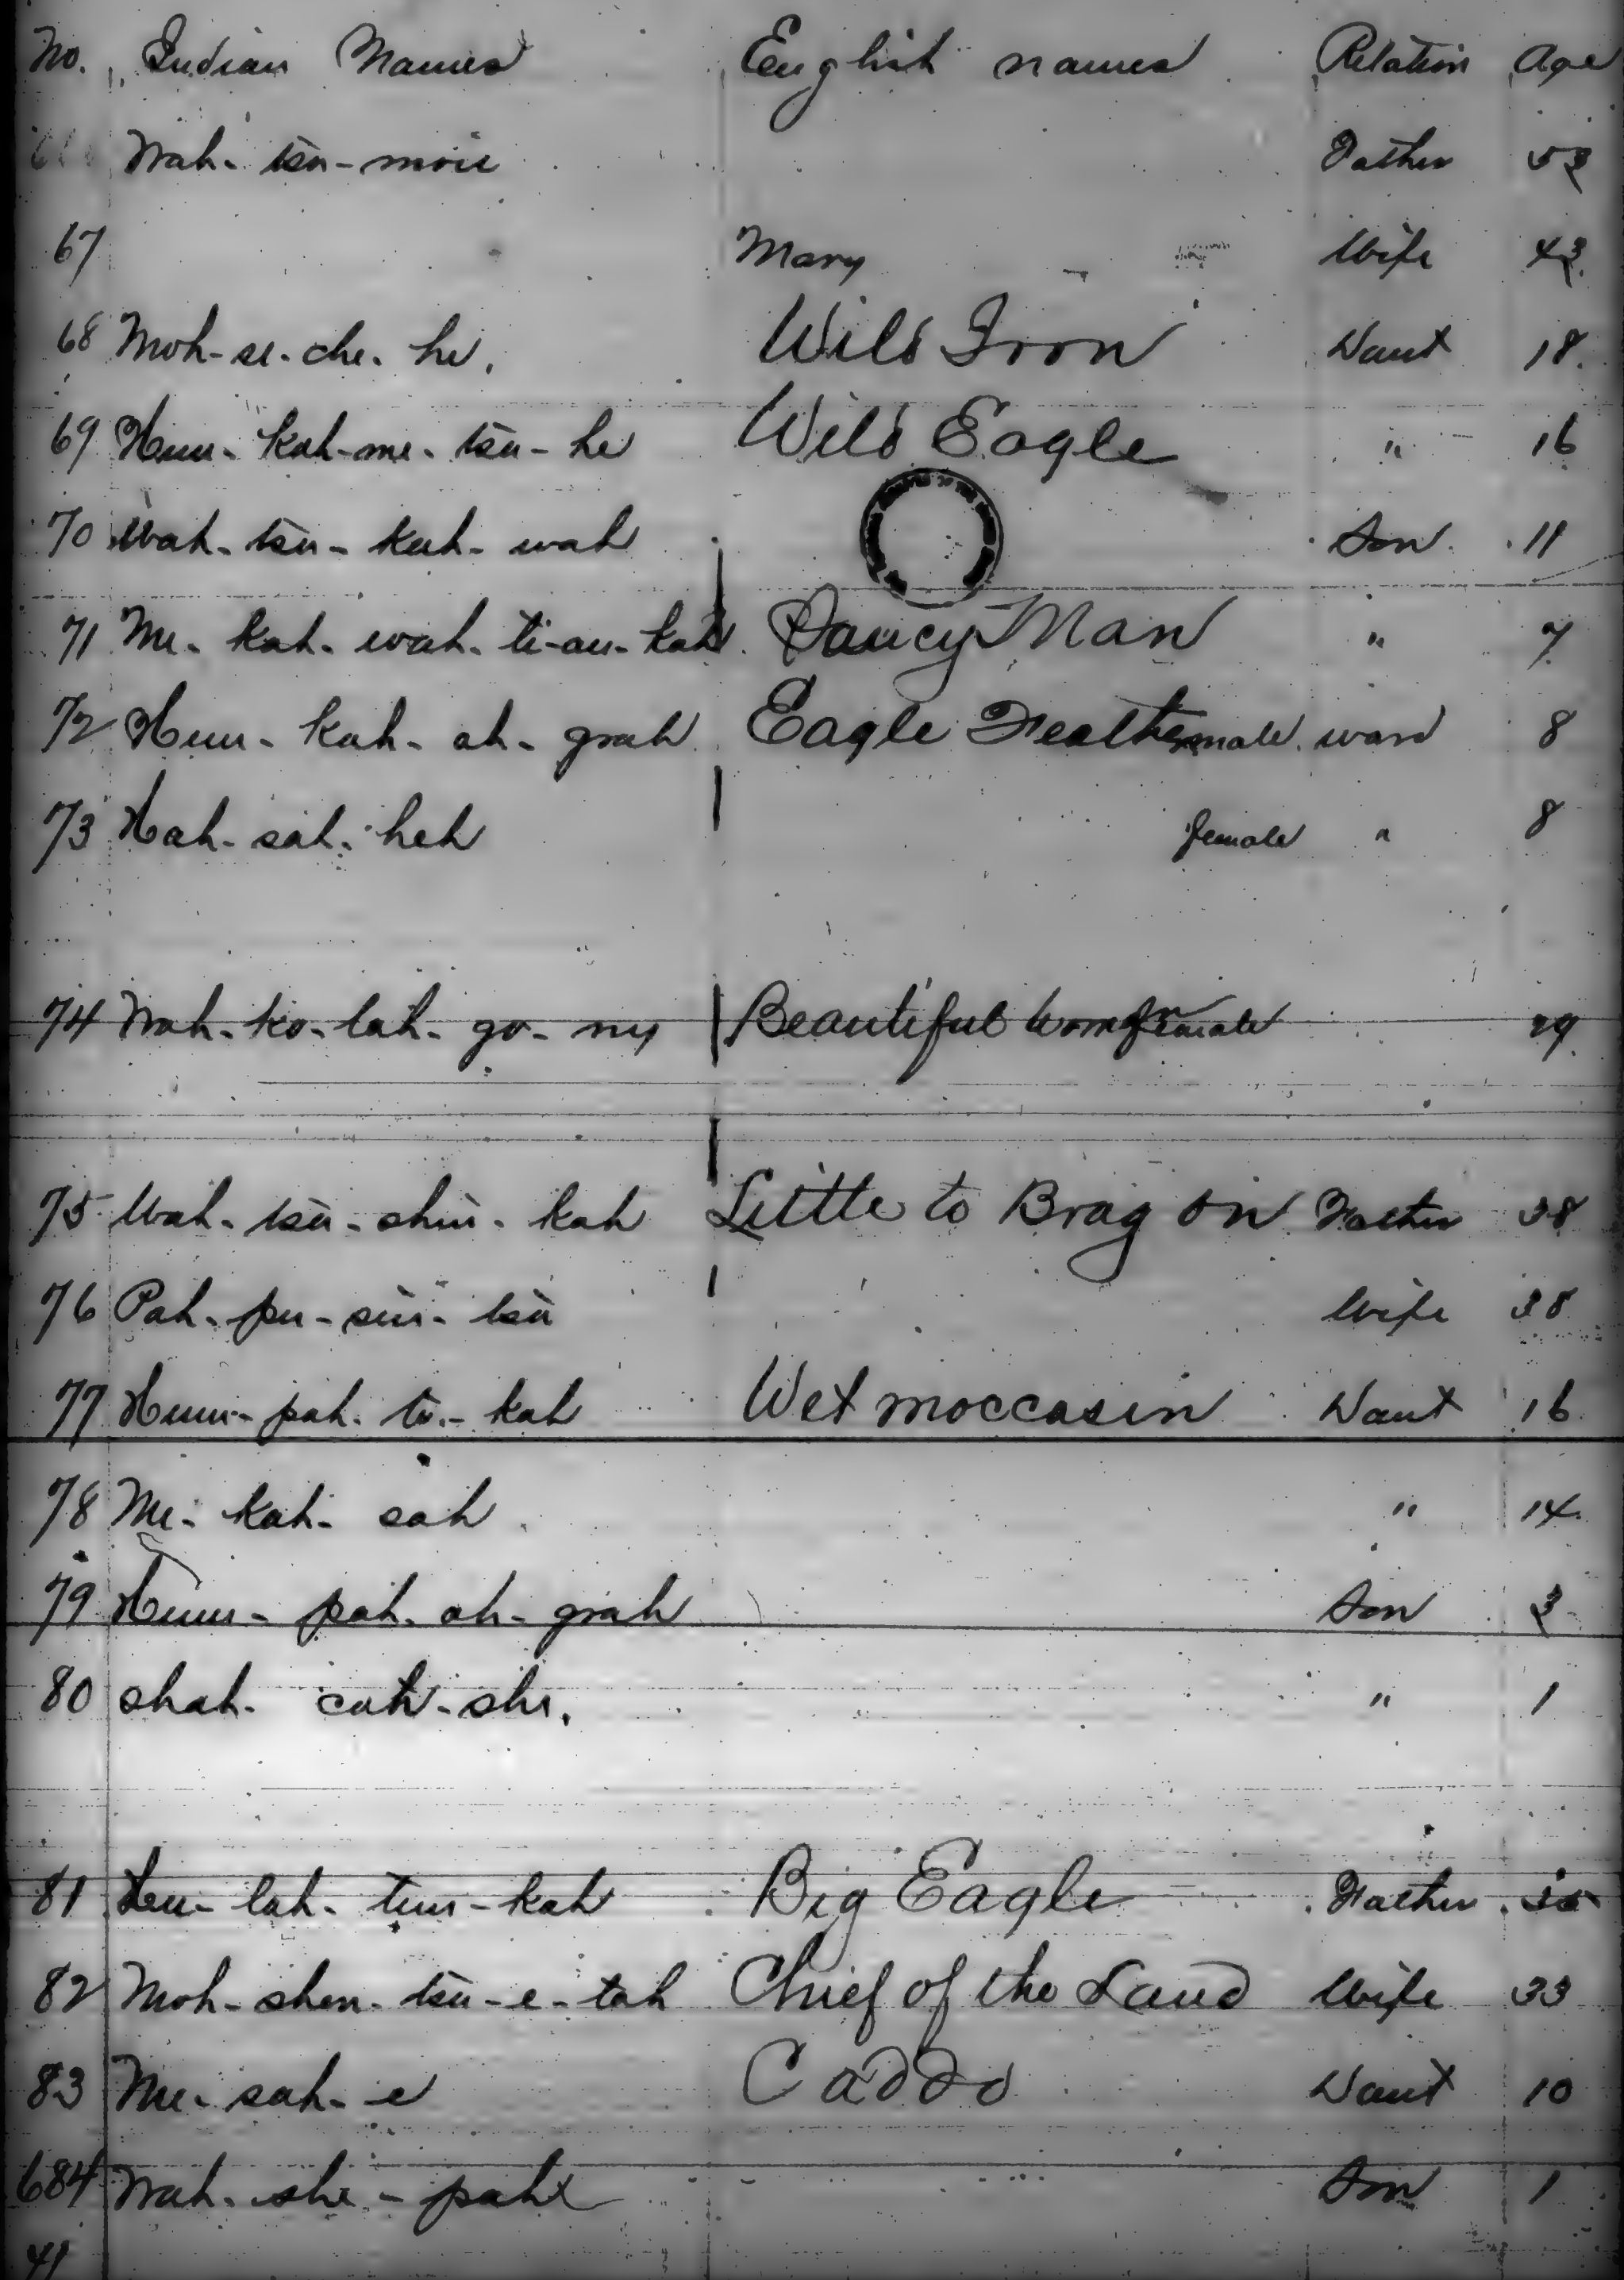 No. Indian Names English names Relation Age
Wah-tsa-moie Father 53
67 Mary Wife 43
68 Moh-se-che-he. Wild Iron Daut 18
69 Hun-kah-me-tsa-he Wild Eagle " 16
70 Wah-tsa-kah-wah Son 11
71 Me-kah-wah-ti-an-kah Saucy Man " 7
72 Hun-kah-ah-grah Eagle Feather male ward 8
73 Hah-sah-heh female " 8
74 Wah-ko-lah-go-ny Beautiful female 29
75 Wah-tsa-shin-kah Little to Brag on Father 38
76 Pah-pu-sin-tsa Wife 38
77 Hum-pah-to-kah Wet moccasin Daut 16
78 Me-kah-sah " 14
79 Hum-pah-ah-grah Son 3
80 shah-cah-she. " 1
81 lah-tun-kah Big Eagle Father
82 Moh-shen-tsa-e-tah Chief of the Land Wife 33
83 Me-sah-e Caddo Daut 10
684 Wah-she-pah Son 1
41